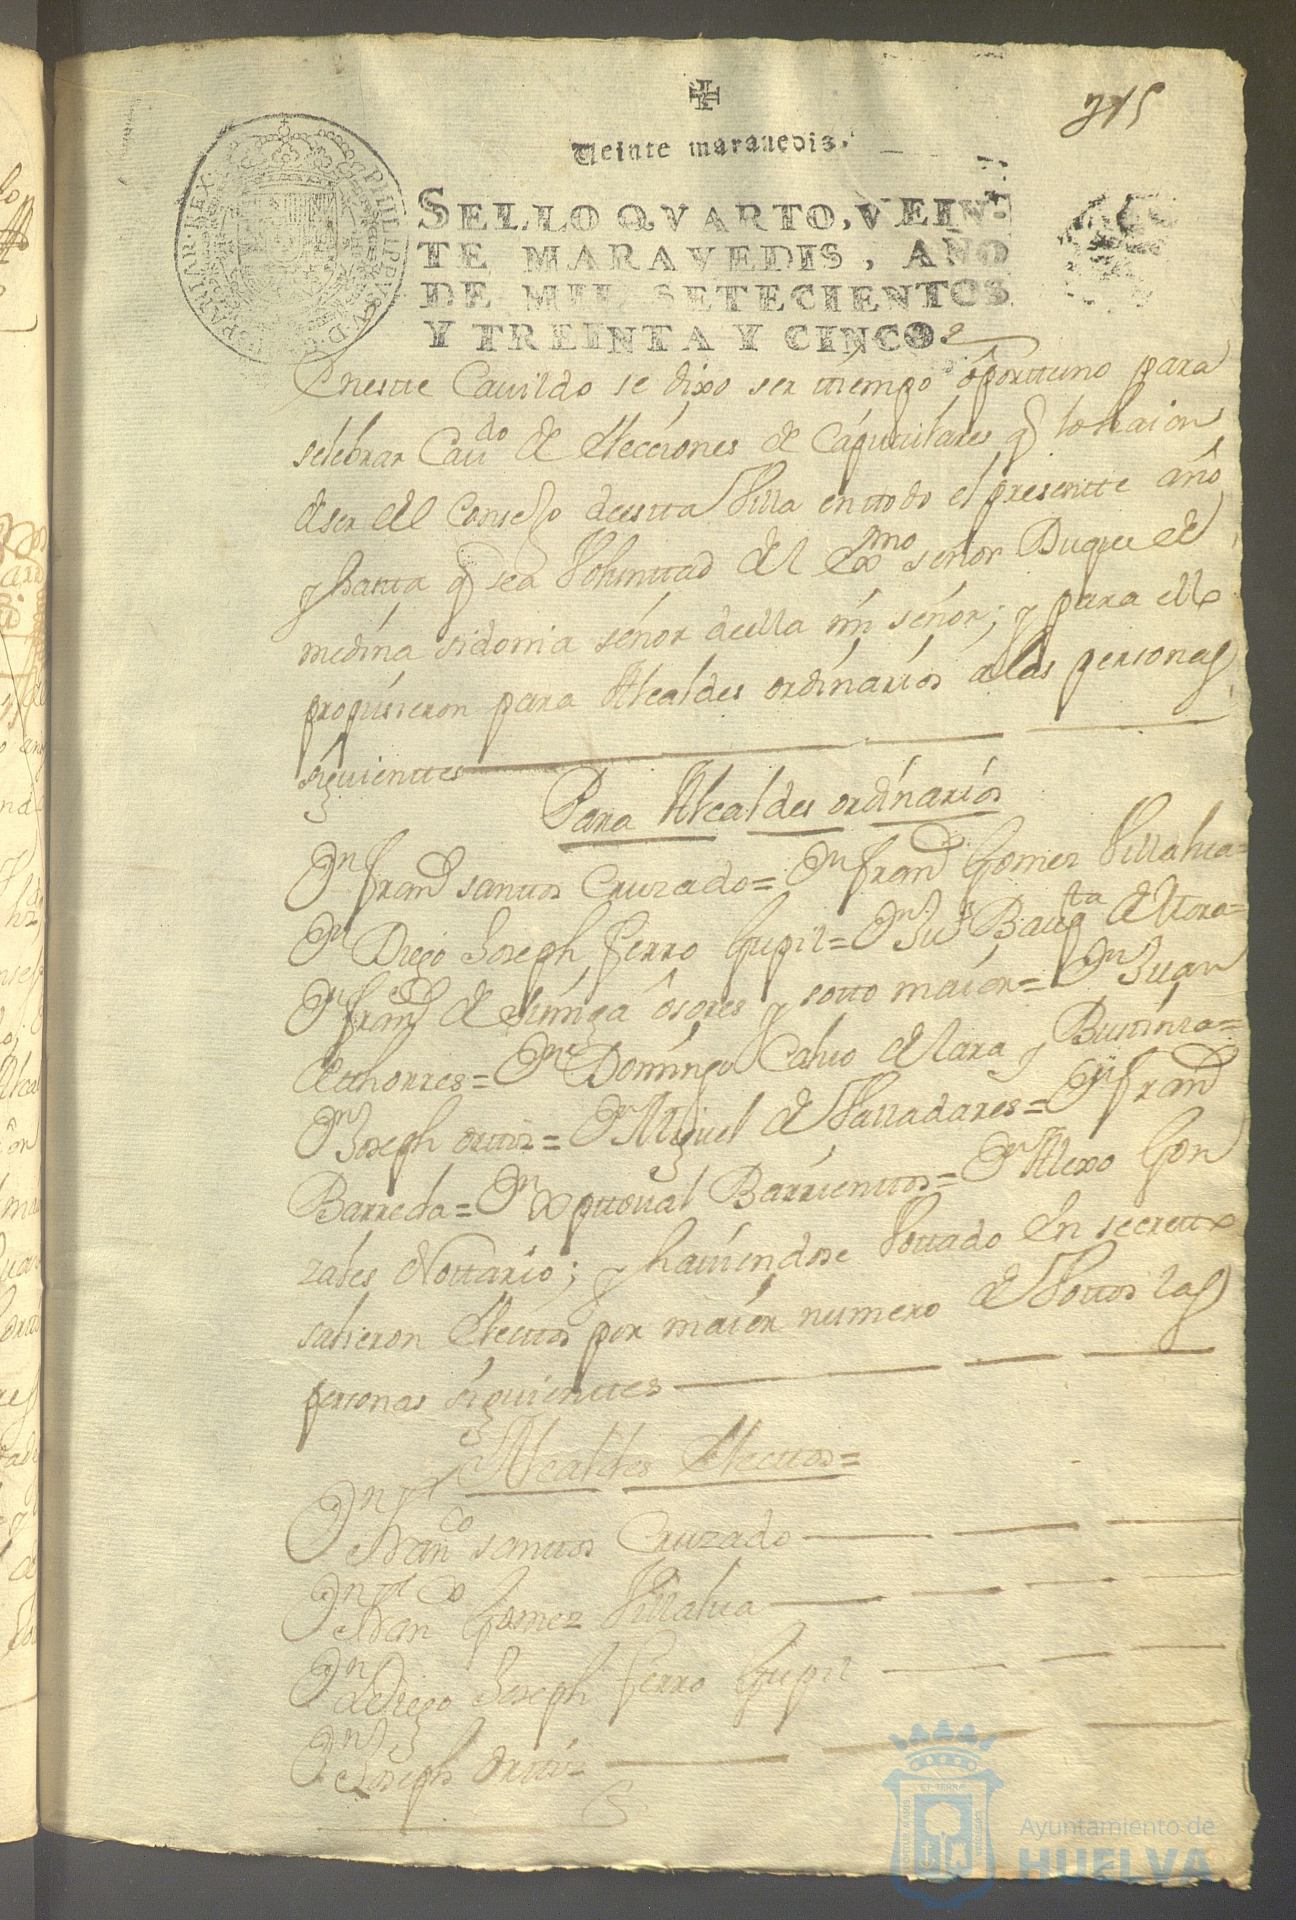 315
Veinte maravedis.
SELLO QVARTO, VEIN-
TE MARAVEDIS, AÑO
DE MIL SETECIENTOS
Y TREINTA Y CINCO.
PHILIPPVS V D G
HISPANIAR REX
Eneste Cavildo se dixo ser ttiempo oporttuno para
selebrar Cavdo de elecciones de Capittulares q lo haian
deser del Consejo deestta Villa enttodo el presentte año
y hastta q sea Volunttad del exmo señor Duque de
medina sidonia señor deella mi señor; y para ello
propusieron para Alcaldes ordinarios alas personas
siguienttes
Para Alcaldes ordinarios
Dn Franco santtos Cruzado= Dn Franco Gomez Villalua=
Dn Diego Joseph Ferro Gupil= Dn Jun Bauptta de Mora=
Dn Franco de Suniga osores y sotto maior= Dn Juan
de thorres= Dn Domingo Calvo de lara y Bustinza=
Dn Joseph orttiz= Dn Miguel de Valladares= Dn Franco
Barreda= Dn Xpttoual Barrienttos= Dn Alexo Gon
zales Nottario; y haviendose Vottado en secretto
salieron electtos por maior numero de Vottos las
personas siguienttes
Alcaldes electtos=
Dn Franco santtos Cruzado
Dn Franco Gomez Villalua
Dn Diego Joseph Ferro Gupil
Dn Joseph orttiz
Ayuntamiento de
HUELVA